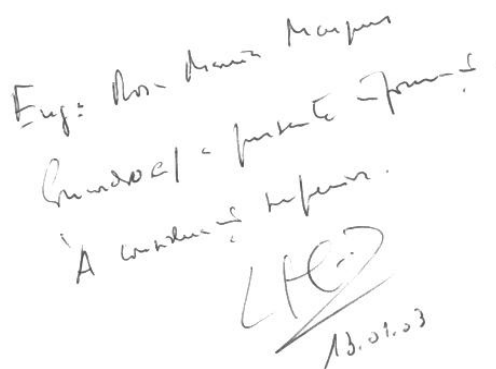 Engª Rosa Maria Marques
Concordo c/ a presente informação.
À consideração superior.
13.01.03